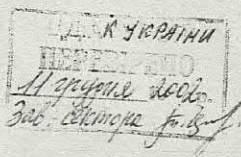 ЦДАК УКРАЇНИ
ПЕРЕВІРЕНО
11 грудня 2002р.
Зав. сектора